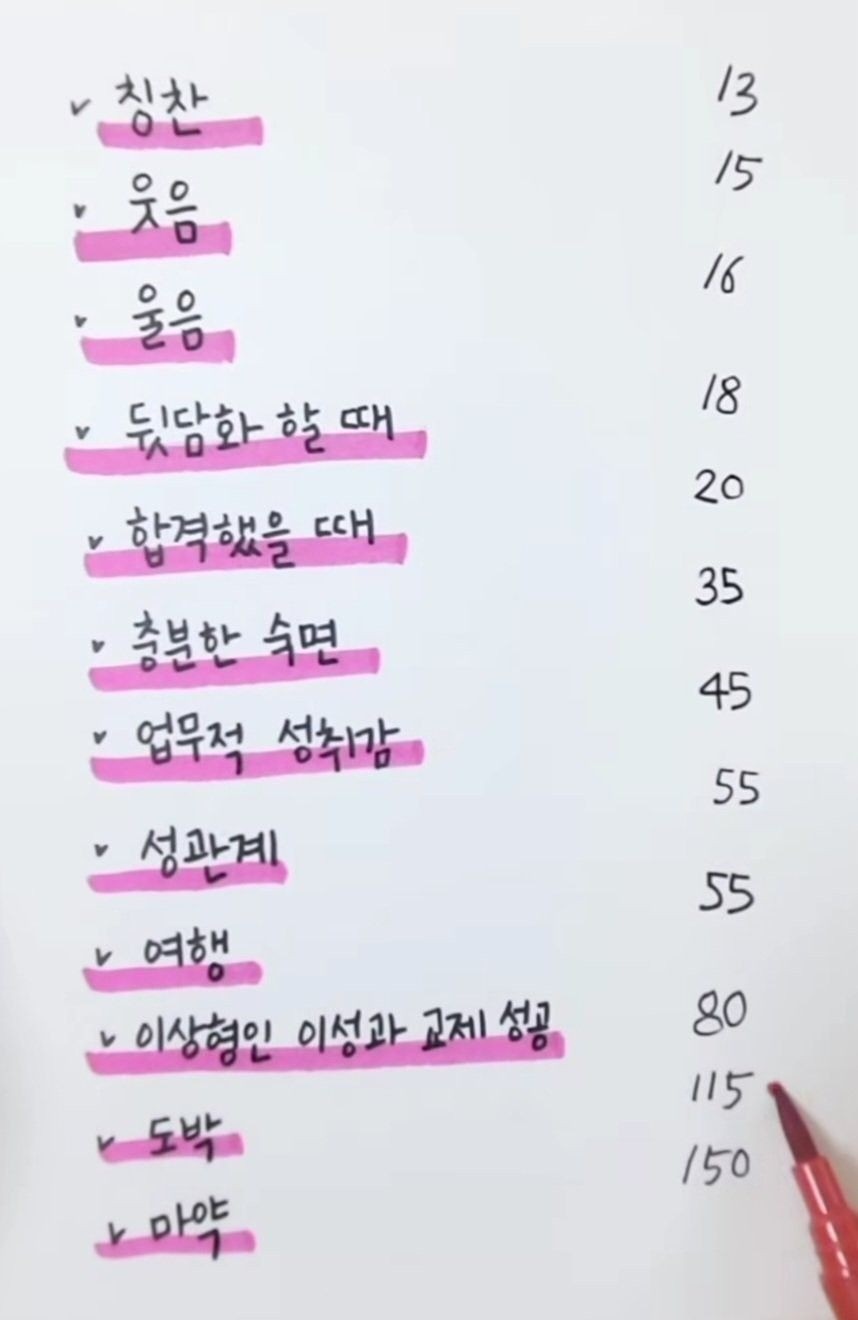 칭찬 13
웃음 15
울음 16
뒷담화 할 때 18
합격했을 때 20
충분한 숙면 35
업무적 성취감 45
성관계 55
여행 55
이상형인 이성과 교제 성공 80
도박 115
마약 150